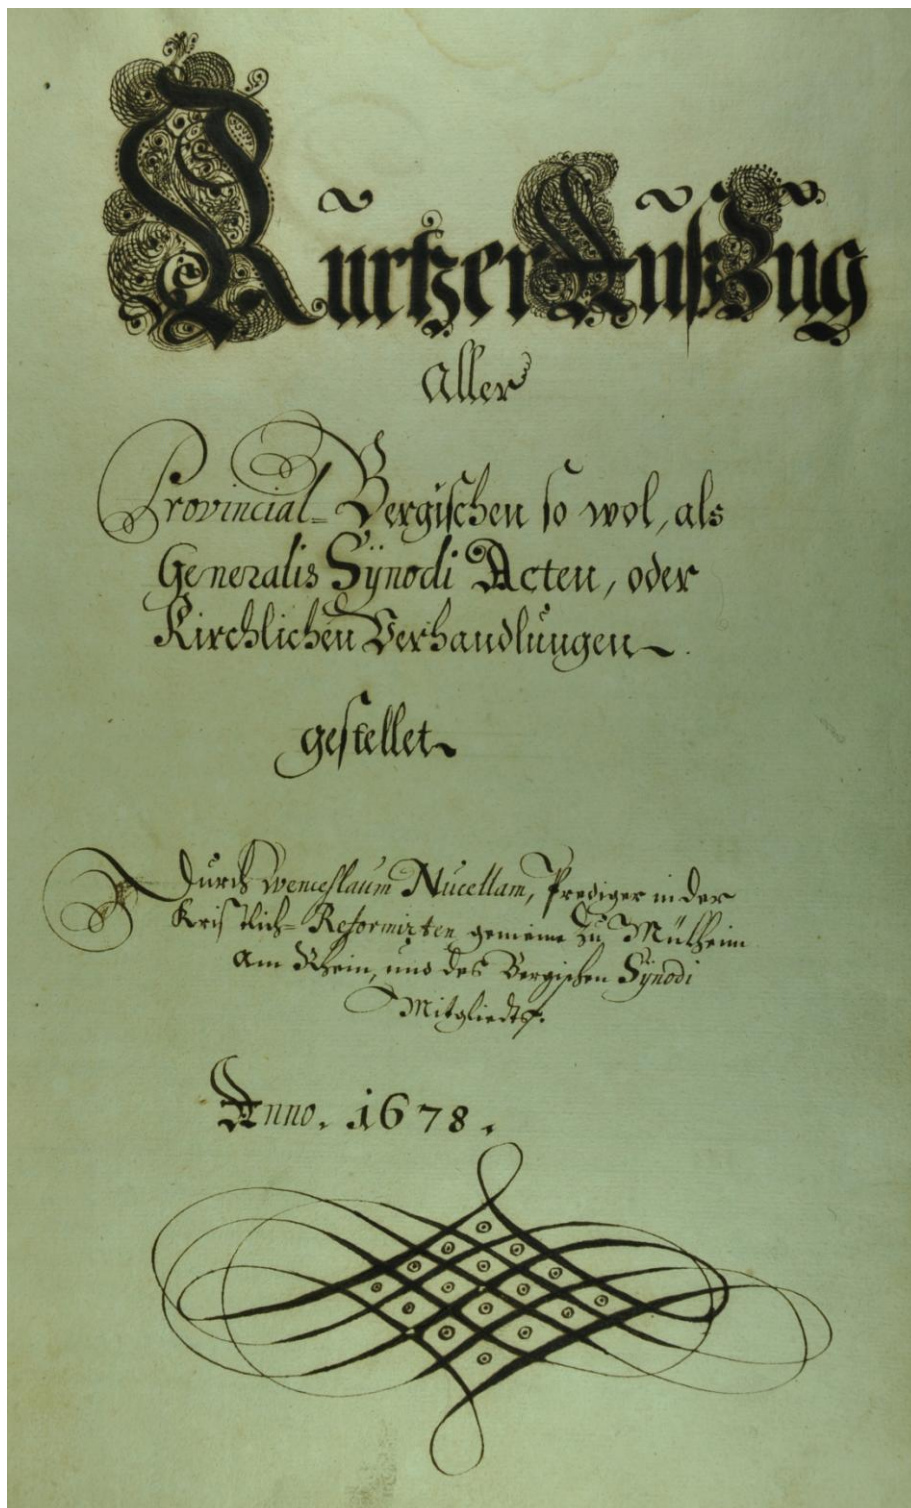 Kurtzer Außzug
Aller
Provincial- Bergischen so wol, als
Generalis Sÿnodi Acten, oder
Kirchlichen Verhandlungen.
gestellet
Durch Wenceslaum Nucellam, Prediger in der
Kristlich- Reformirten gemeine zu Mülheim
am Rhein, und des Bergischen Sÿnodi
Mitgliedt.
Anno. 1678.